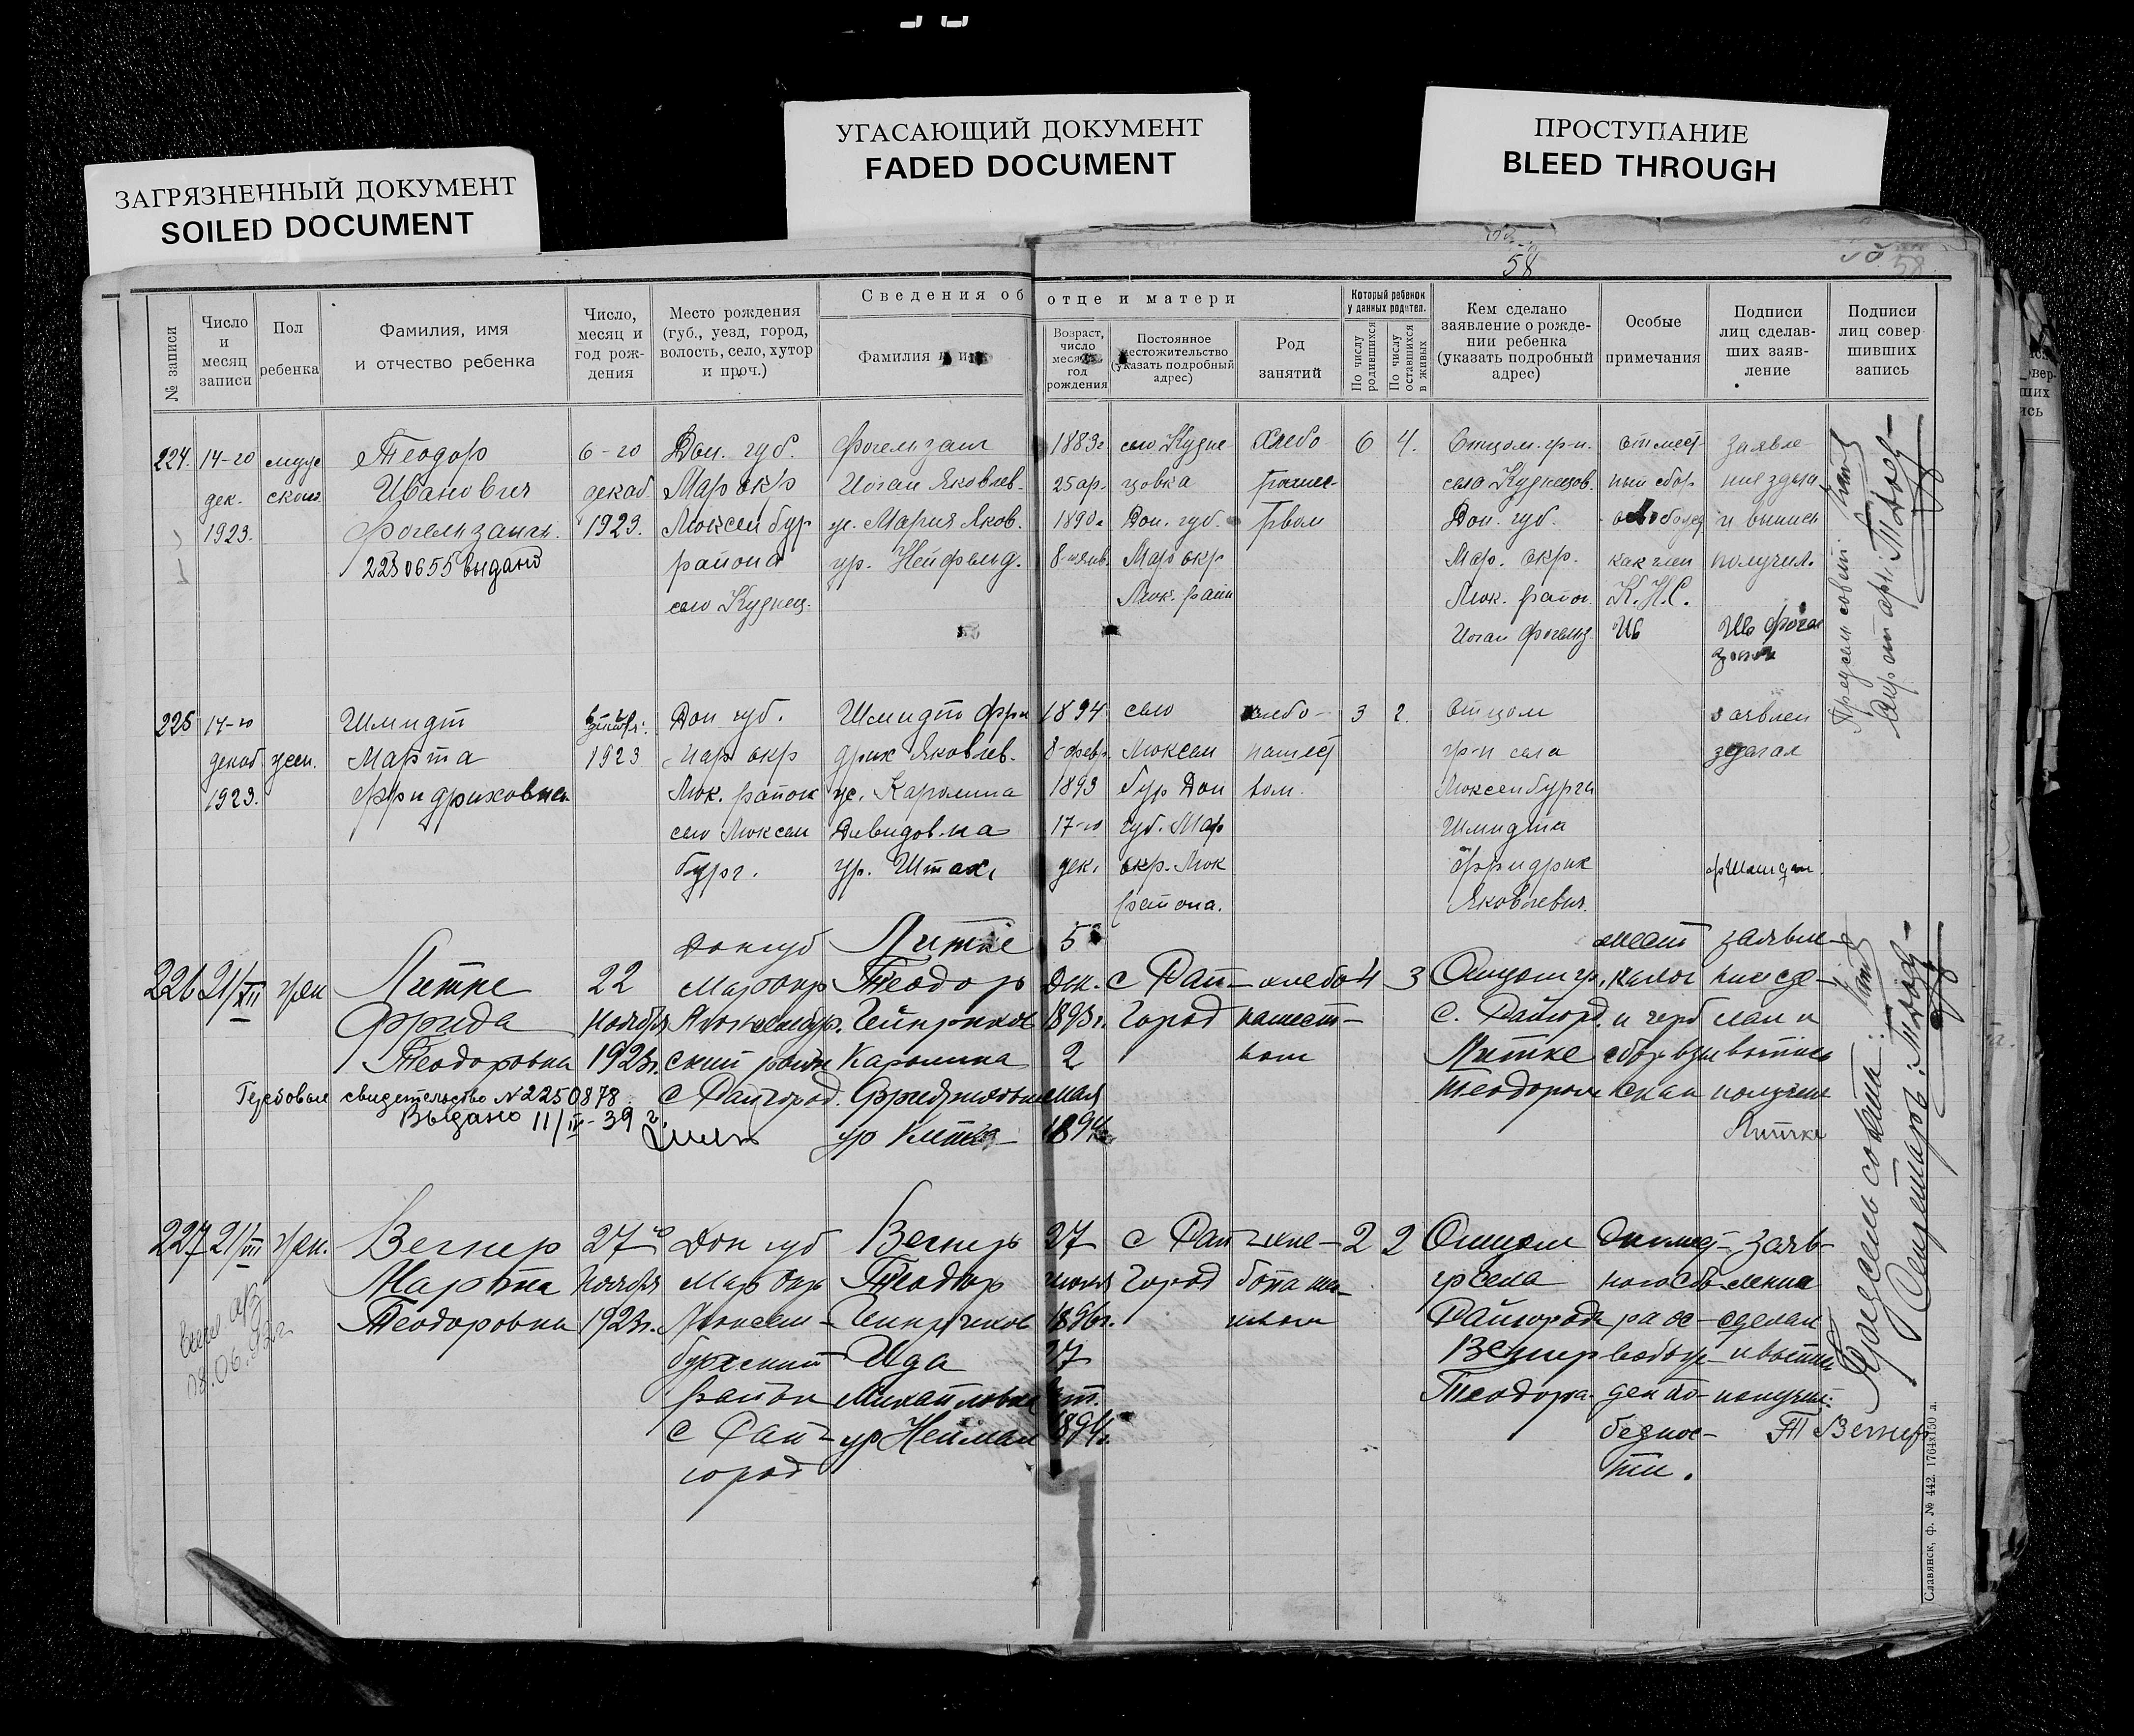 ЗАГРЯЗНЕННЫЙ ДОКУМЕНТ
SOILED DOCUMENT
УГАСАЮЩИЙ ДОКУМЕНТ
FADED DOCUMENT
ПРОСТУПАНИЕ
BLEED THROUGH
58
58
Сведения об отце и матери
№ записи
Число
и
месяц
записи
Пол
ребенка
Фамилия, имя
и отчество ребенка
Число,
месяц и
год рож-
дения
Место рождения
(губ., уезд, город,
волость, село, хутор
и проч.)
Фамилия и имя
Возраст,
число
месяц
год
рождения
Постоянное
местожительство
(указать подробный
адрес)
Род
занятий
Который ребенок
у данных родител.
По числу
родившихся
По числу
оставшихся
в живых
Кем сделано
заявление о рожде-
нии ребенка
(указать подробный
адрес)
Особые
примечания
Подписи
лиц сделав-
ших заяв-
ление
Подписи
лиц совер-
шивших
запись
224.
14-го
дек.
1923.
муж
ской
Теодор
Иванович
Фогельзанг.
2230655 выдано
6-го
декаб
1923.
Дон. губ.
Мар окр
Люксембур
района
село Кузнец.
Фогельзанг
Иоган Яковлев.
ж. Мария Яков.
ур. Нейфельд.
1883г
25 апр.
1890г
8 янв.
село Кузне
цовка
Дон. губ.
Мар окр
Люк. райн
Хлебо
пашес-
твом
6
4.
Отцом гр-н.
села Кузнецов.
Дон. губ.
Мар. окр.
Люк. район
Иоган Фогельз.
От мест
ный сбор
освобожд
как член
К.Н.С.
Ив
Заявле
ние здела
и выпись
получил.
Ив Фогел
занг
225
14-го
декаб
1923.
жен.
Шмидт
Марта
Фридриховна
1923
Дон губ.
Мар окр
Люк. район
село Люксем
бург.
Шмидт Фри
дрих Яковлев.
ж. Каролина
Давидовна
ур. Штах.
1894
8-февр.
1893
17-го
дек.
село
Люксем
бур Дон
губ. Мар
окр. Люк
района.
хлебо-
пашест
вом.
3
2.
Отцом
гр-н села
Люксембурга
Шмидта
Фридрих
Яковлевич.
заявлен
зделал
Ф Шмидт.
226
21/XII
жен
Литке
Фрида
Теодоровна
Гербовое свидетельство №2250878
Выдано 11/IV-39 г.
22
ноября
1923г.
Дон губ
Мар окр
Люксембур.
ский район
с Райгород.
Литке
Теодор
Гейнрихов
Каролина
Фридриховна
ур Литке
5
Дек.
1893г.
2
мая
с Рай-
город
хлебо
пашест-
вом
4
3
Отцом гр.
с. Райгород.
Литке
Теодором
мест
налог
и герб
сбор взы
скан
заявле-
ние сде-
лал и
выпись
получил
Литке
227
21/XII
жен.
Вегнер
Марта
Теодоровна
27го
ноября
1923г.
Дон губ
Мар окр
Люксем-
бургский
район
с Рай-
город
Вегнер
Теодор
Гейнрихов
Ида
Михайловна
ур Нейман
27
июля
1896г.
17
1894г.
с Рай
город
хле-
бопаше-
ством
2
2
Отцом
гр села
Райгорода
Вегнер
Теодора
От мест-
ного сбо
ра ос-
вобож-
ден по
беднос-
ти.
Заяв-
ление
сделал
и выпись
получил:
Т Вегнер
Председ совета:
Секретарь:
Славянск, ф. № 442. 1764х150 л.